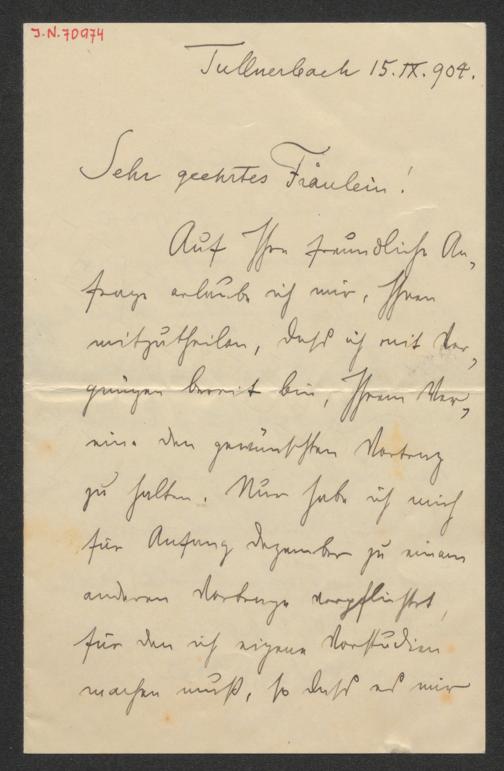 J.N. 70974
Tullnerbach 15. IX. 904.
Sehr geehrtes Fräulein!
Auf Ihre freundliche An-
frage erlaube ich mir, Ihnen
mitzutheilen, daß ich mit Ver-
gnügen bereit bin, Ihrem Ver-
eine den gewünschten Vortrag
zu halten. Nur habe ich mich
für Anfang Dezember zu einem
anderen Vortrage verpflichtet,
für den ich eigene Vorstudien
machen muß, so daß es mir